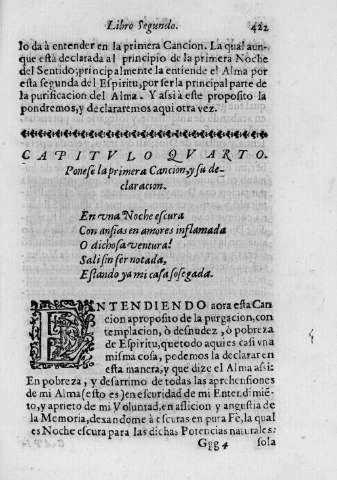 Libro Segundo. 422
lo dà à entender en la primera Cancion. La qual aun-
que està declarada al principio de la primera Noche
del Sentido; principalmente la entiende el Alma por
esta segunda del Espiritu, por ser la principal parte de
la purificacion del Alma. Y assi à este proposito la
pondremos, y declararemos aqui otra vez.
CAPITVLO QVARTO.
Ponese la primera Cancion, y su de-
claracion.
En vna Noche escura
Con ansias en amores inflamada
O dichosa ventura!
Sali sin ser notada,
Estando ya mi casa sosegada.
ENTENDIENDO aora esta Can
cion a proposito de la purgacion, con
templacion, ò desnudez, ò pobreza
de Espiritu, que todo aqui es casi vna
misma cosa, podemos la declarar en
esta manera, y que dize el Alma assi:
En pobreza, y desarrimo de todas las aprehensiones
de mi Alma (esto es) en escuridad de mi Entendimiẽ-
to, y aprieto de mi Voluntad, en afliccion y angustia de
la Memoria, dexandome à escuras en pura Fè, la qual
es Noche escura para las dichas Potencias naturales:
Ggg 4 sola